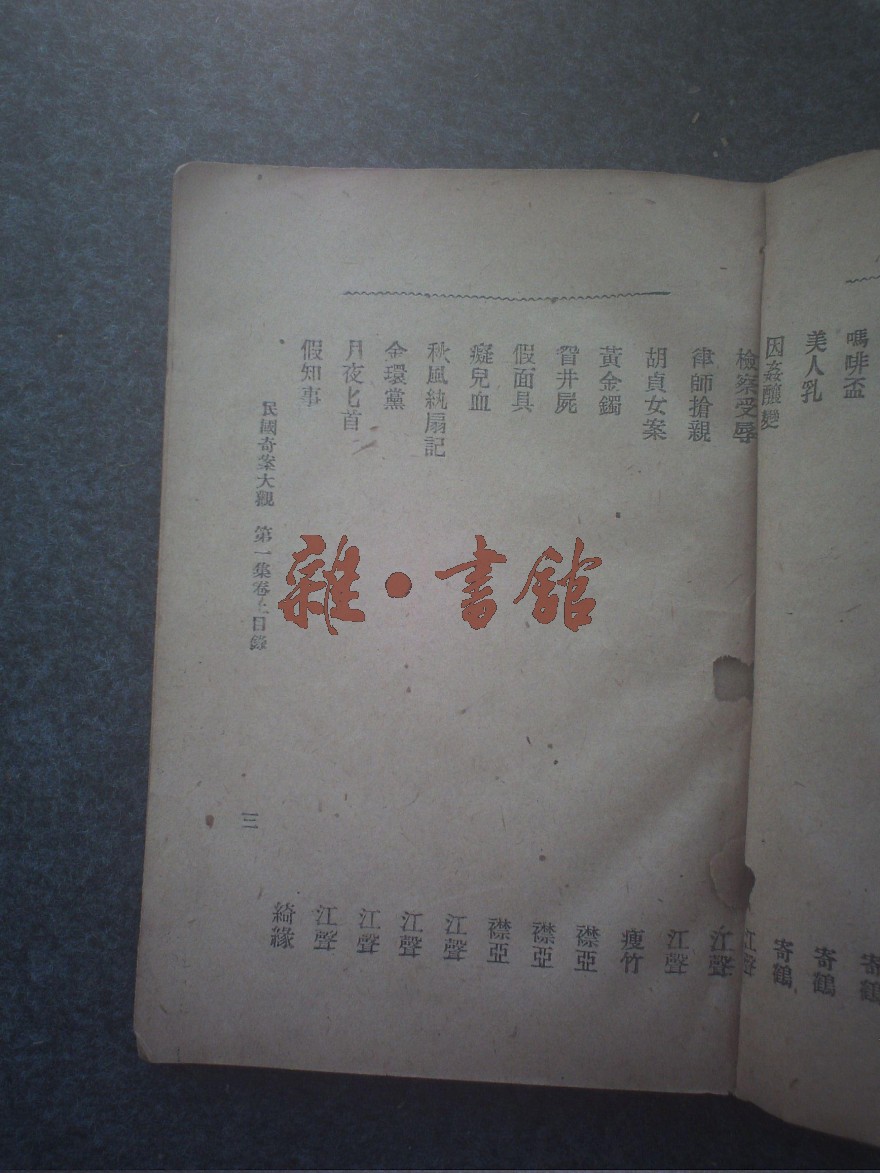 寄鶴
嗎啡盃 寄鶴
美人乳 寄鶴
因姦釀變 江聲
檢察受辱 江聲
律師搶親 江聲
胡貞女案 瘦竹
黃金鐲 襟亞
眢井屍 襟亞
假面具 襟亞
癡兒血 江聲
秋風紈扇記 江聲
金環黨 江聲
月夜匕首 江聲
假知事 綺緣
民國奇案大觀 第一集卷上目錄 三
雜·書館